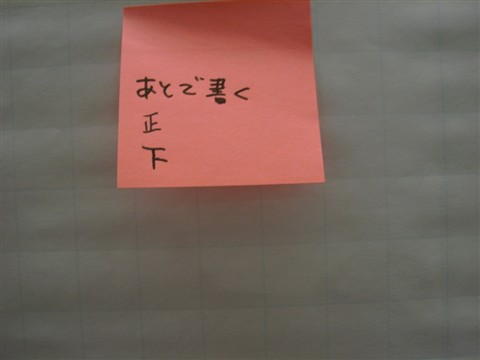 あとで書く
正
下